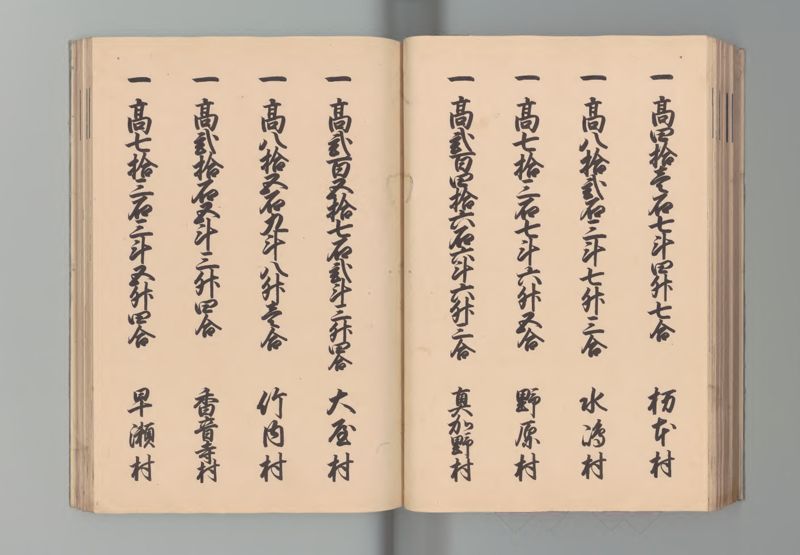 一 高四拾壱石七斗四升七合 杤本村
一 高八拾弐石三斗七升三合 水嶋村
一 高七拾三石七斗六升五合 野原村
一 高弐百四拾六石六斗六升三合 真加野村
一 高弐百五拾七石弐斗三升四合 大屋村
一 高八拾五石九斗八升壱合 竹内村
一 高弐拾石五斗三升四合 香音寺村
一 高七拾三石三斗五升四合 早瀬村